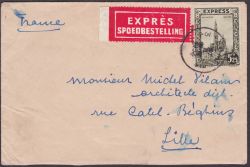 France
EXPRÈS
SPOEDBESTELLING
Monsieur Michel Vilain
architecte dipl.
rue Catel-Béghin
Lille